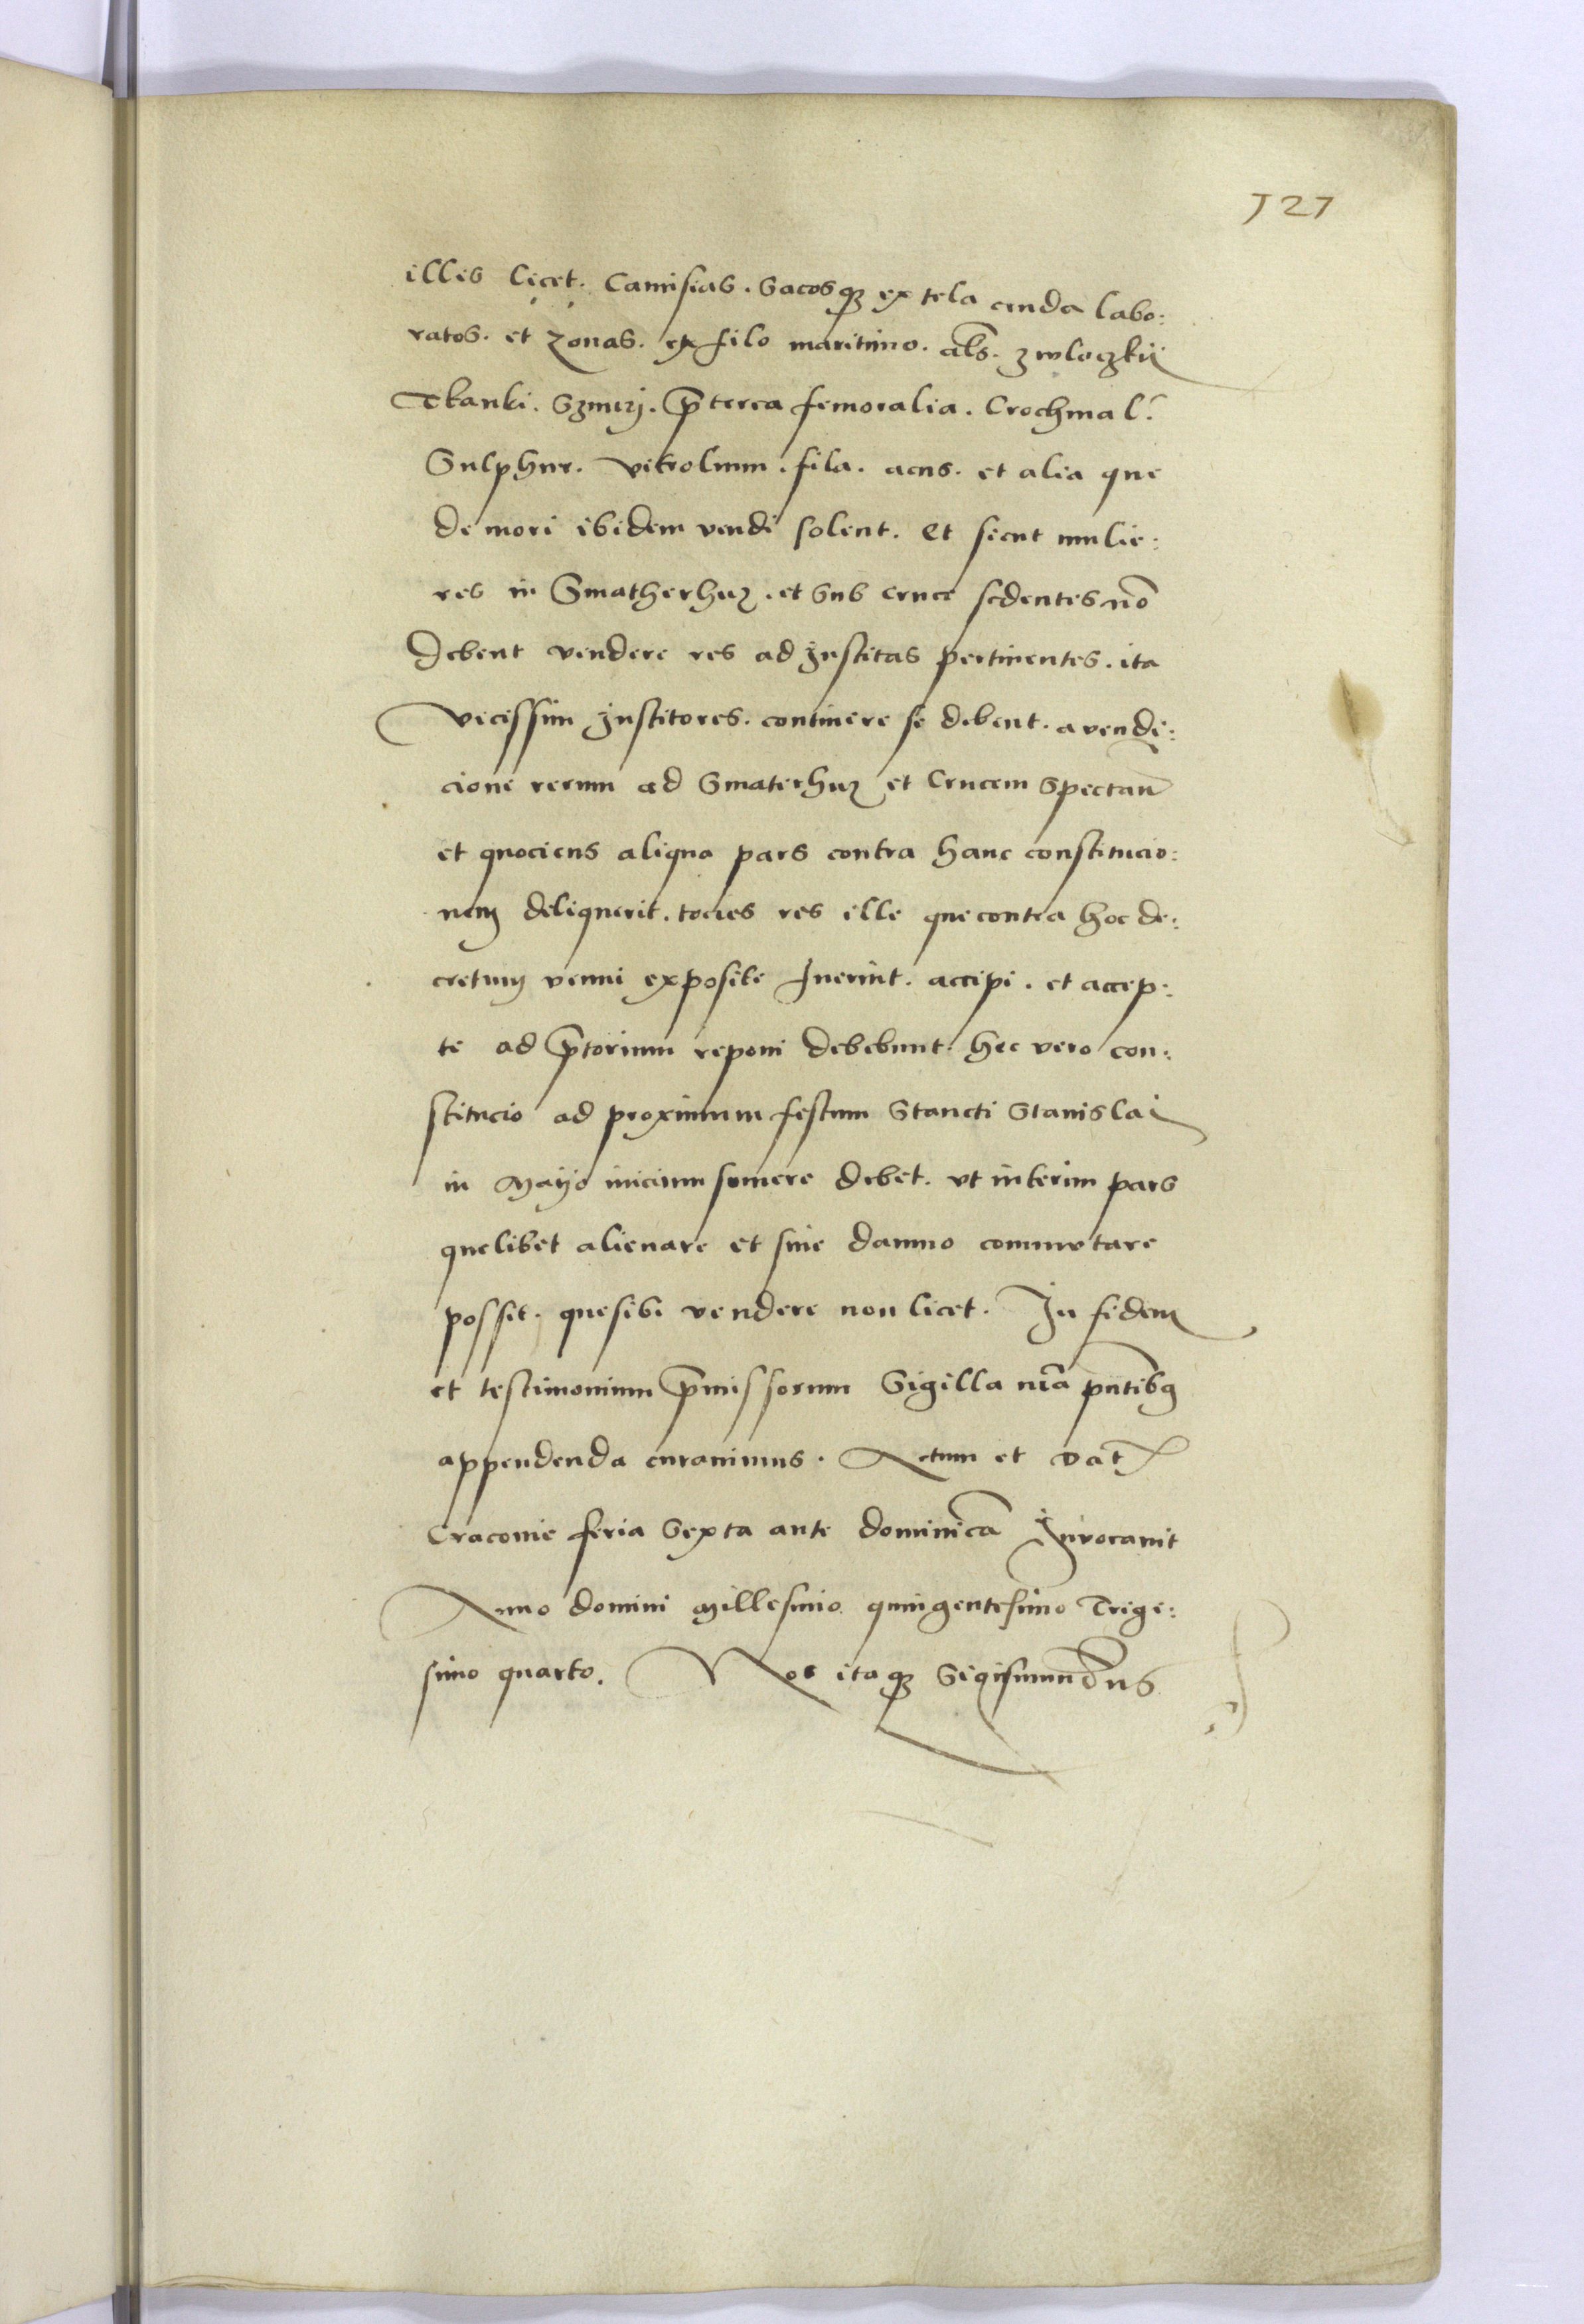 127
illis licet. Camisias. Sacosqȝ ex tela cruda labo:
ratos. et Zonas. ex filo maritimo. als. zwloczkij
Tkanki. Sznurj. p̄terea femoralia. Crochmal.
Sulphur. vitrolium. fila. acus. et alia que
de mori ibidem vendi solent. Et sicut mulie:
res in Smatherhuz. et Sub cruce sedentes nō
debent vendere res ad Institas pertinentes. ita
vicissim Institores. continere se debent. a vendi:
cione rerum ad Smaterhuz et Crucem Spectan̄
et quociens aliqua pars contra hanc constitucio:
nem deliquerit. tocies res ille que contra hoc de:
cretum venui exposite fuerint. accipi. et accep:
te ad p̄torium reponi debebunt. hec vero con:
stitucio ad proximum festum Stancti Stanislai
in Mayo inicium sumere debet. vt interim pars
quelibet alienare et sine damno commutare
possit. que sibi vendere non licet. In fidem
et testimonium p̄missorum Sigilla nr̄a pn̄tibꝫ
appendenda curauimus. Actum et Dat̄
Cracouie feria Sexta ante dominicā Inuocauit
Anno domini Millesimo quingentesimo Trige:
simo quarto. Nos itaqȝ Sigismundus